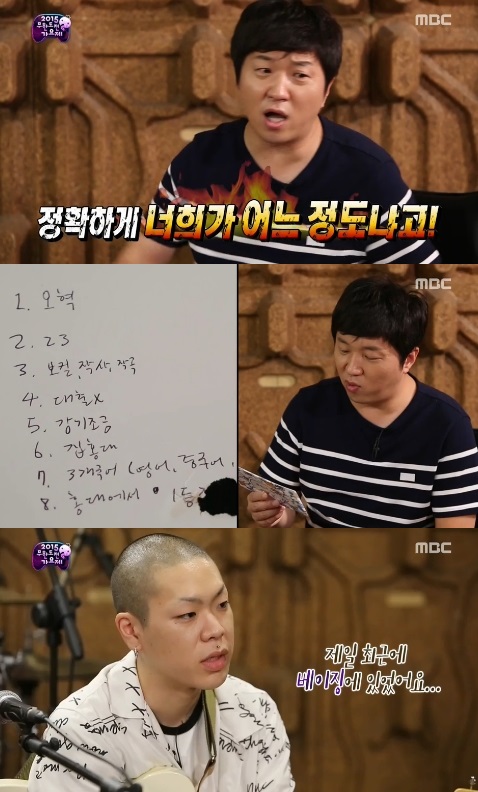 2015
무한도전
가요제
MBC
정확하게 너희가 어느 정도냐고!
1. 오혁
2. 23
3. 보컬, 작사, 작곡
4. 대혈x
5. 감기조금
6. 집홍대
7. 3개국어 (영어, 중국어,
8. 홍대에서 1등
MBC
2015
무한도전
가요제
MBC
제일 최근에
베이징에 있었어요...